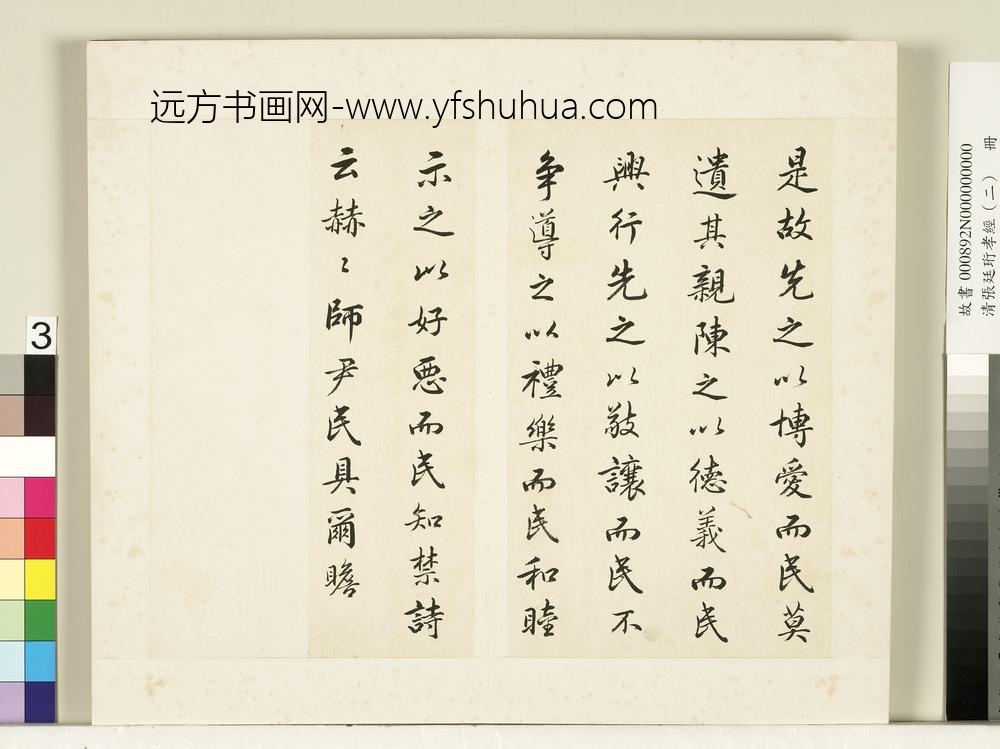 远方书画网-www.yfshuhua.com
是故先之以博愛而民莫
遺其親陳之以德義而民
興行先之以敬讓而民不
争導之以禮樂而民和睦
示之以好惡而民知禁詩
云赫〻師尹民具爾瞻
故書 000892N000000000 冊
清張廷珩孝經(二)
3